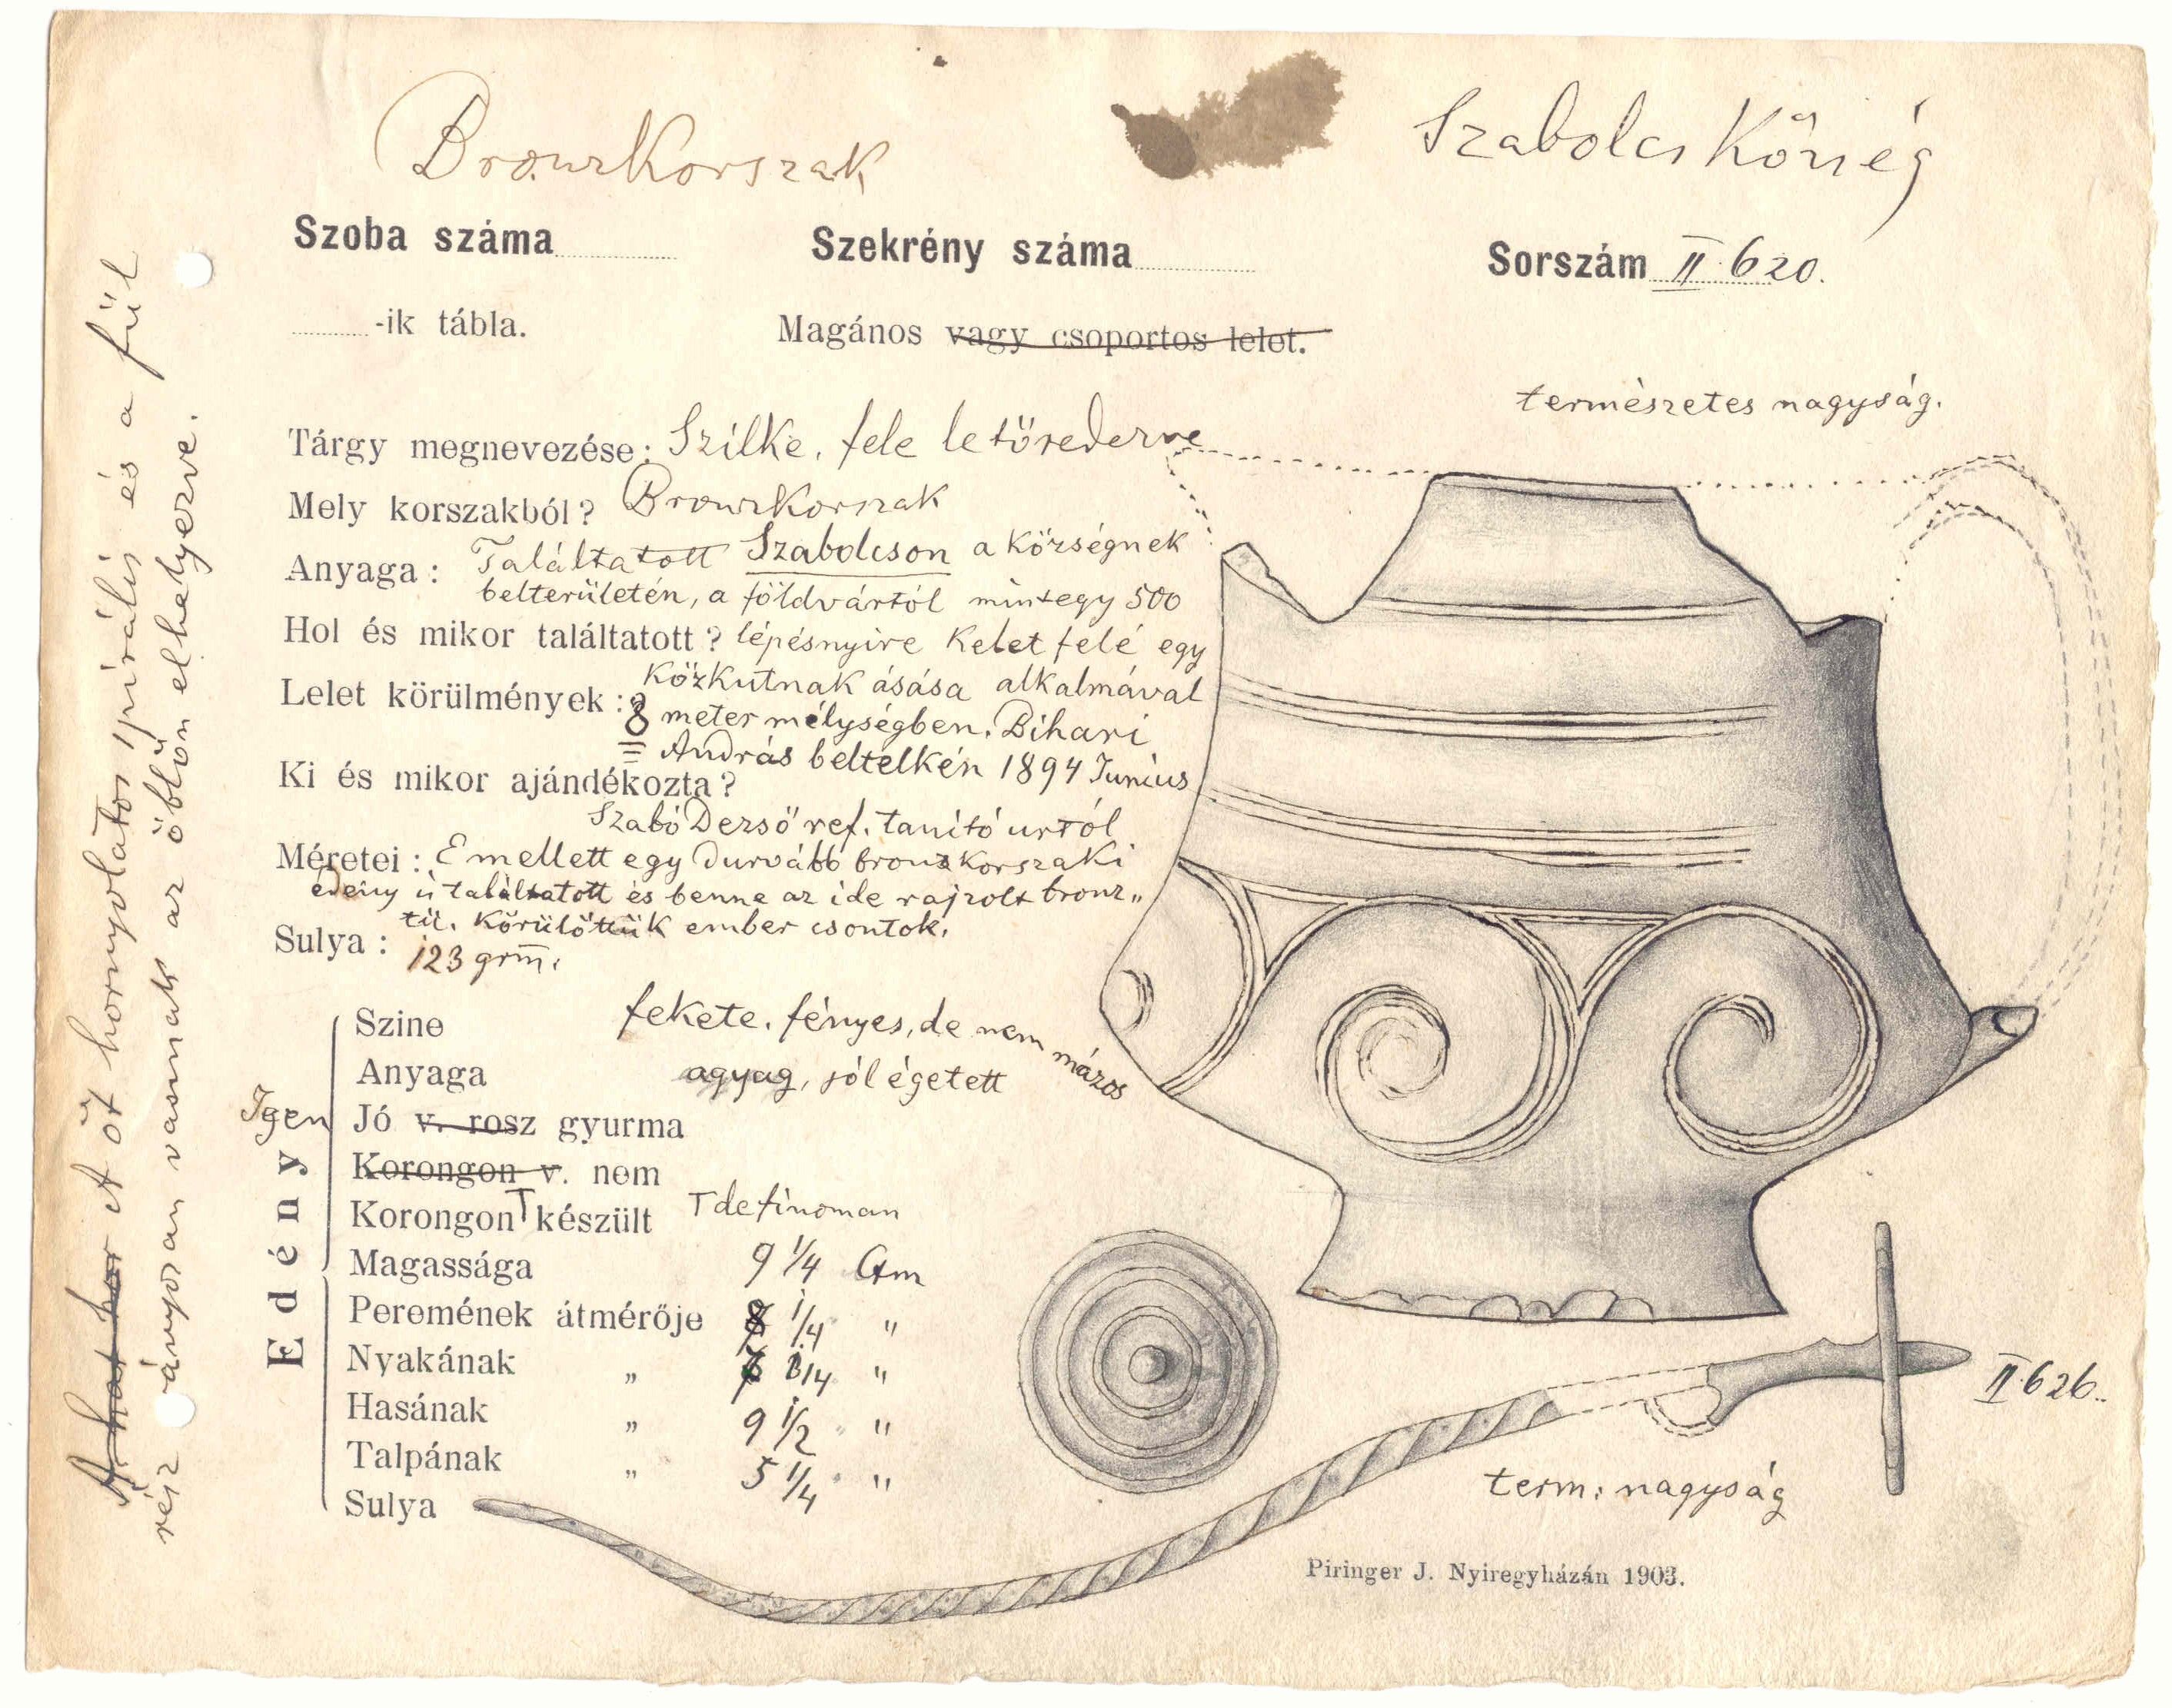 Bronzkorszak
Szabolcs Község
Szoba száma
Szekrény száma
Sorszám II. 620.
-ik tábla.
Magános vagy csoportos lelet.
természetes nagyság.
Tárgy megnevezése: Szilke, fele letöredezve
Mely korszakból? Bronzkorszak
Anyaga: Találtatott Szabolcson a községnek
belterületén, a földvártól mintegy 500
Hol és mikor találtatott? lépésnyire Kelet felé egy
közkutnak ásása alkalmával
Lelet körülmények: 8 meter mélységben. Bihari
András beltelkén 1894 Junius
Ki és mikor ajándékozta?
Szabó Dezső ref. tanító urtól
Méretei: Emellett egy durvább bronzkorszaki
edény is találtatott és benne az ide rajzolt bronz„
tű. Körülöttük ember csontok.
Sulya: 123 grm.
Edény
Igen
Szine fekete, fényes, de nem mázos
Anyaga agyag, jól égetett
Jó v. rosz gyurma
Korongon v. nem
Korongon T készült T de finoman
Magassága 9 1/4 Ctm
Peremének átmérője 1/4 "
Nyakának „ "
Hasának „ 9 1/2 "
Talpának „ 5 1/4 "
Sulya
II. 626.
term: nagyság
Piringer J. Nyiregyházán 1903.
A hat hor A öt hornyolatos spirális és a fül
rész arányosan vannak az öblön elhelyezve.